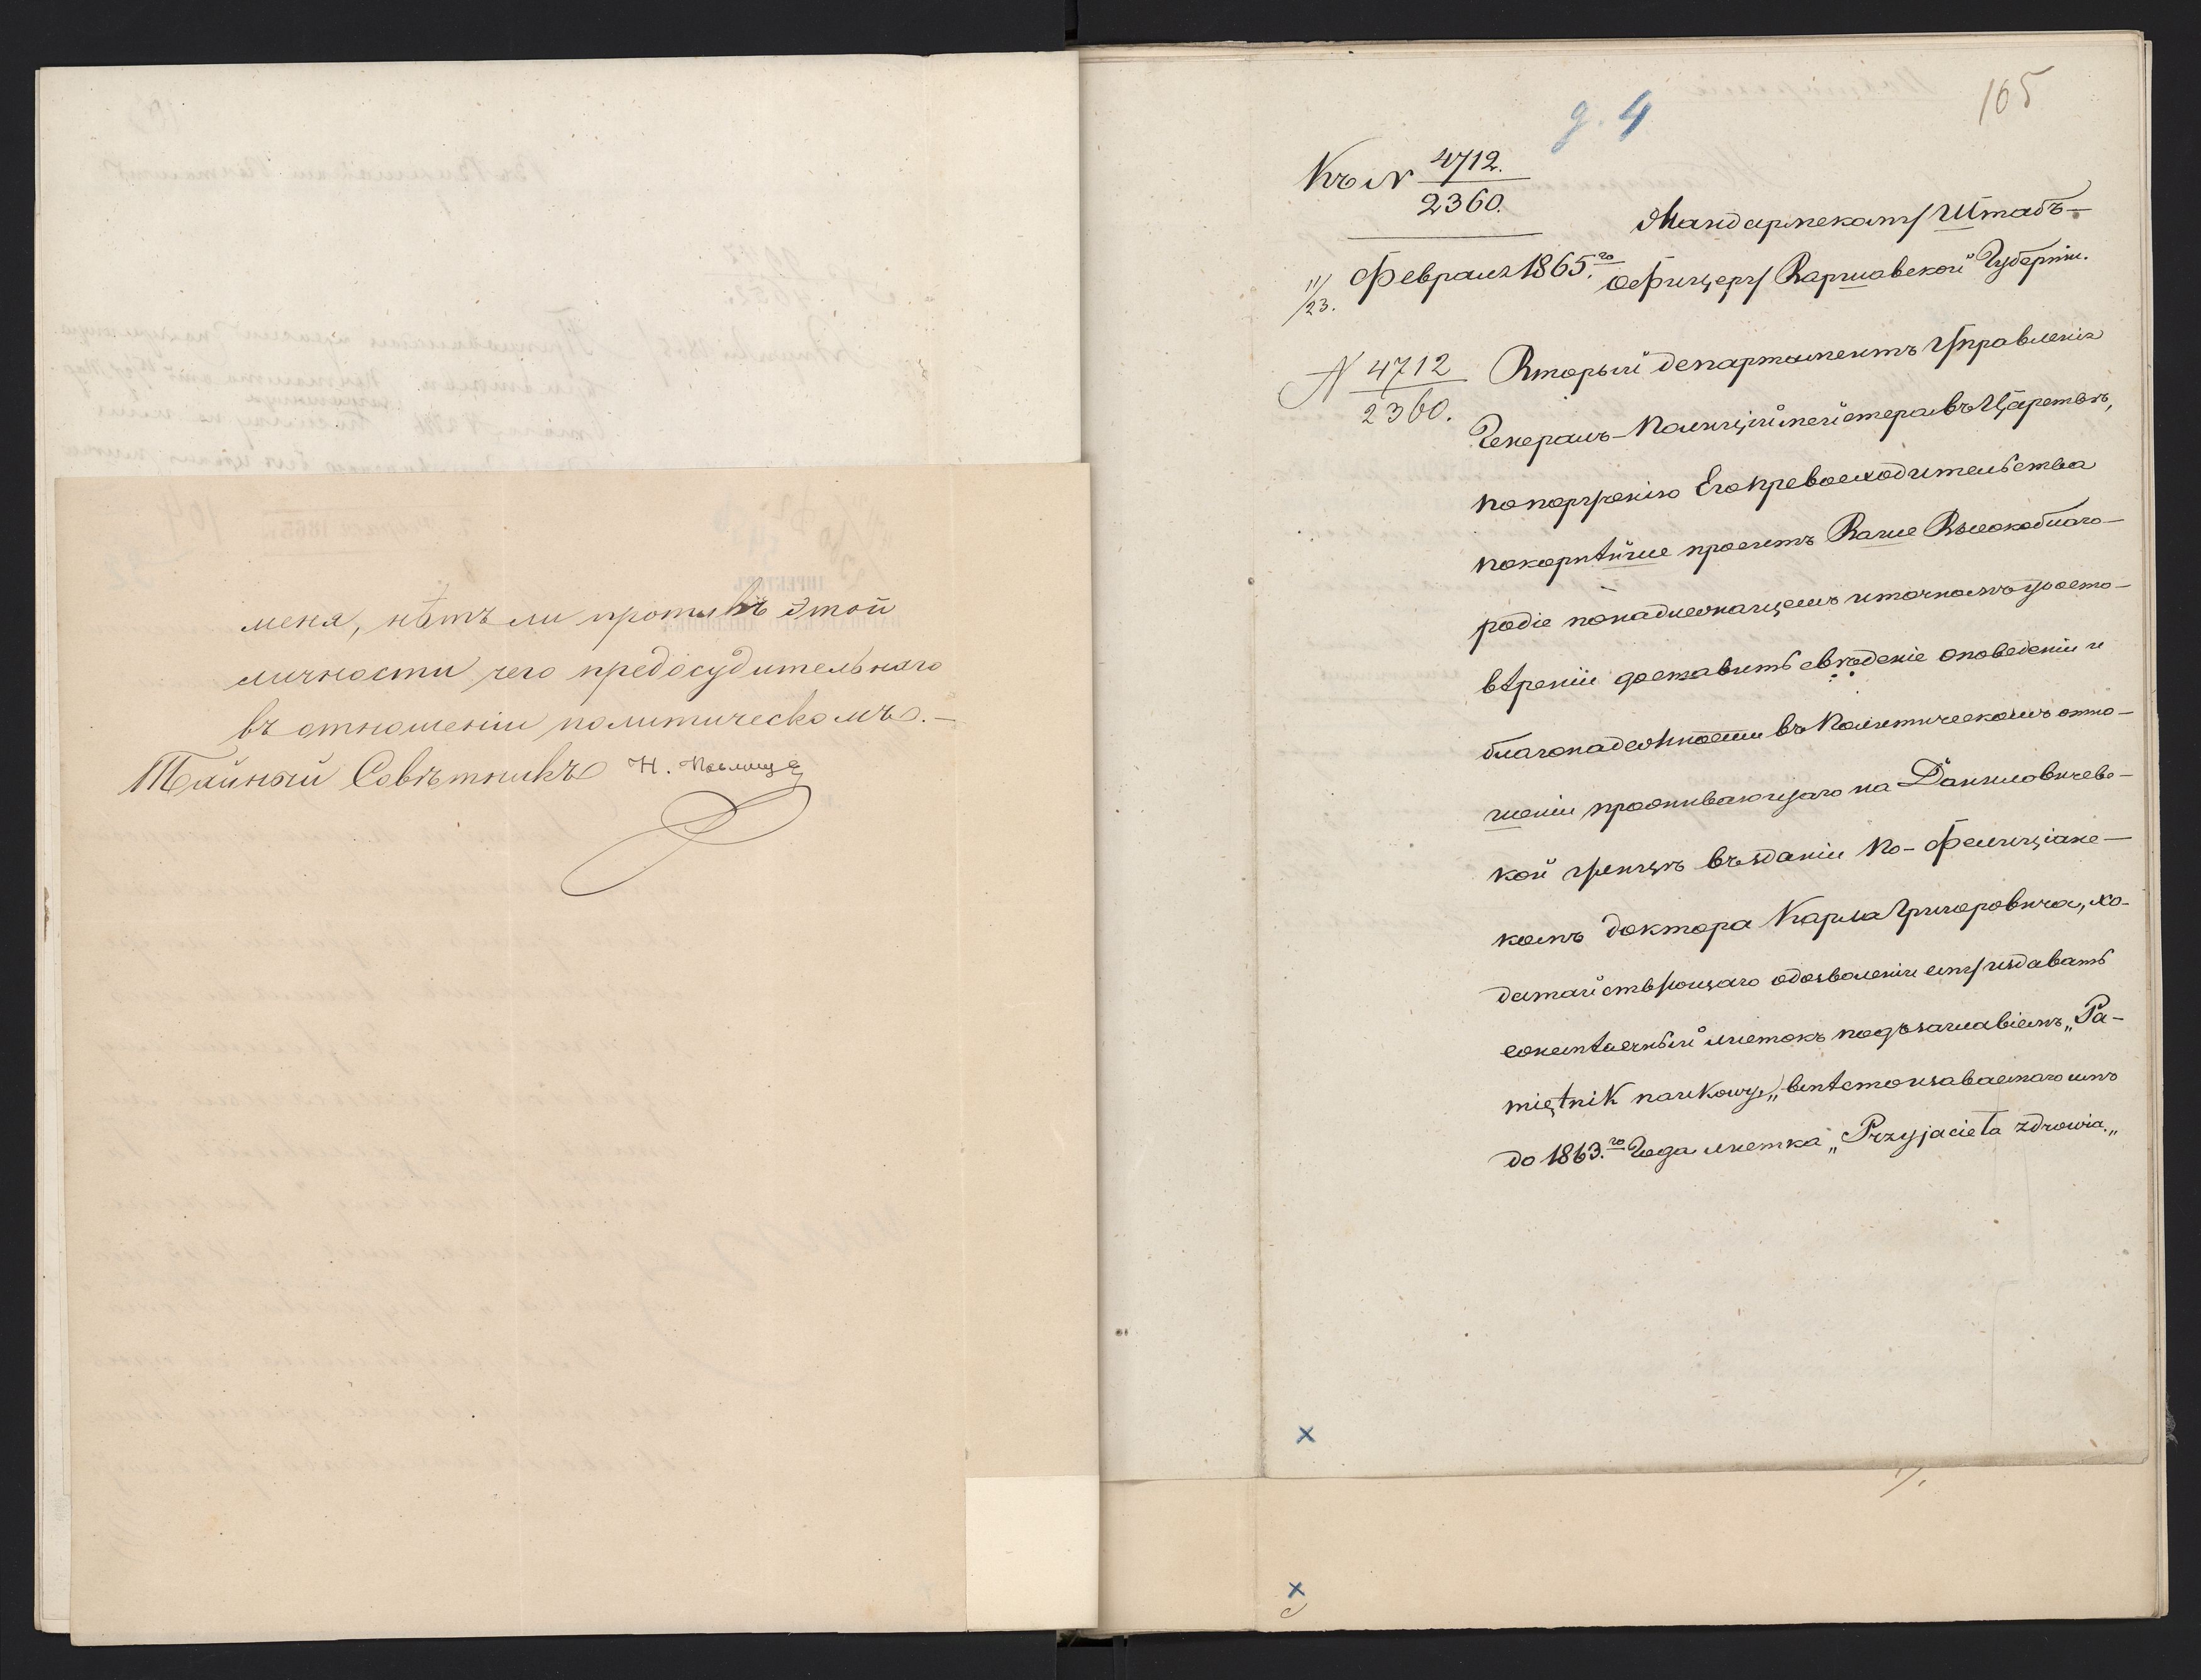 меня, нѣтъ ли противъ этой
личности чего предосудительнаго
въ отношеніи политическомъ.—
Тайный Совѣтникъ Н.
165
д. 4
Къ N 4712.
2360.
Жандармскому Штабъ-
Офицеру Варшавской Губерніи.
11/23. Февраля 1865.го
N 4712
2360.
Вторый департаментъ Управленія
Генералъ-Полиціймейстера въ Царствѣ,
по порученію Его Превосходительства
покорнѣйше проситъ Ваше Высокоблаго-
родіе по надлежащемъ и точномъ удосто-
вѣреніи доставить свѣдѣніе о поведеніи и
благонадежности въ Политическомъ отно-
шеніи проживающаго на Даниловичев-
кой улицѣ въ зданіи По-Фелиціанс-
комъ доктора Карла Григоровича, хо-
датайствующаго о дозволеніи ему издавать
ежемѣсячный листокъ подъ заглавіемъ „Pa-
miętnik naukowy„ вмѣсто издаваемаго имъ
до 1863.го Года листка „Przyjaciela zdrowia.„